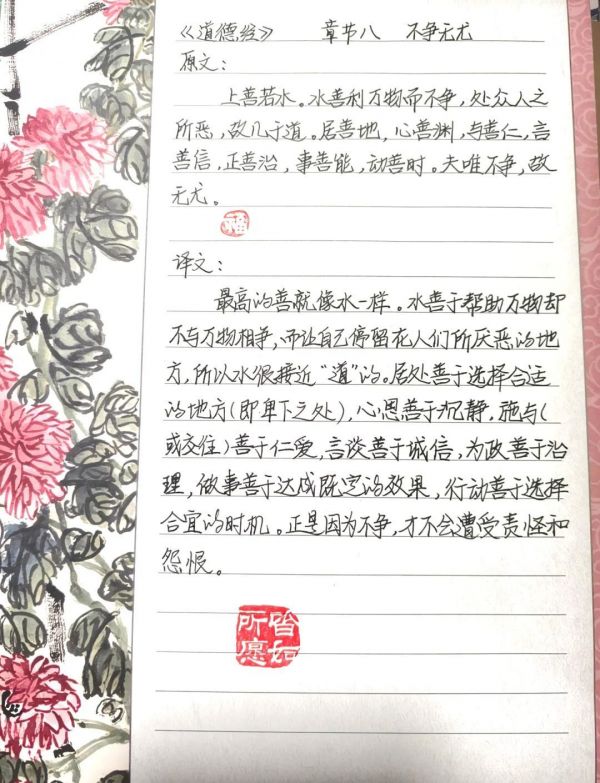 《道德经》 章节八 不争无尤
原文：
上善若水。水善利万物而不争，处众人之
所恶，故几于道。居善地，心善渊，与善仁，言
善信，正善治，事善能，动善时。夫唯不争，故
无尤。
福
译文：
最高的善就像水一样。水善于帮助万物却
不与万物相争，而让自己停留在人们所厌恶的地
方，所以水很接近“道”的。居处善于选择合适
的地方（即卑下之处），心思善于沉静，施与（
或交往）善于仁爱，言谈善于诚信，为政善于治
理，做事善于达成既定的效果，行动善于选择
合宜的时机。正是因为不争，才不会遭受责怪和
怨恨。
皆如
所愿